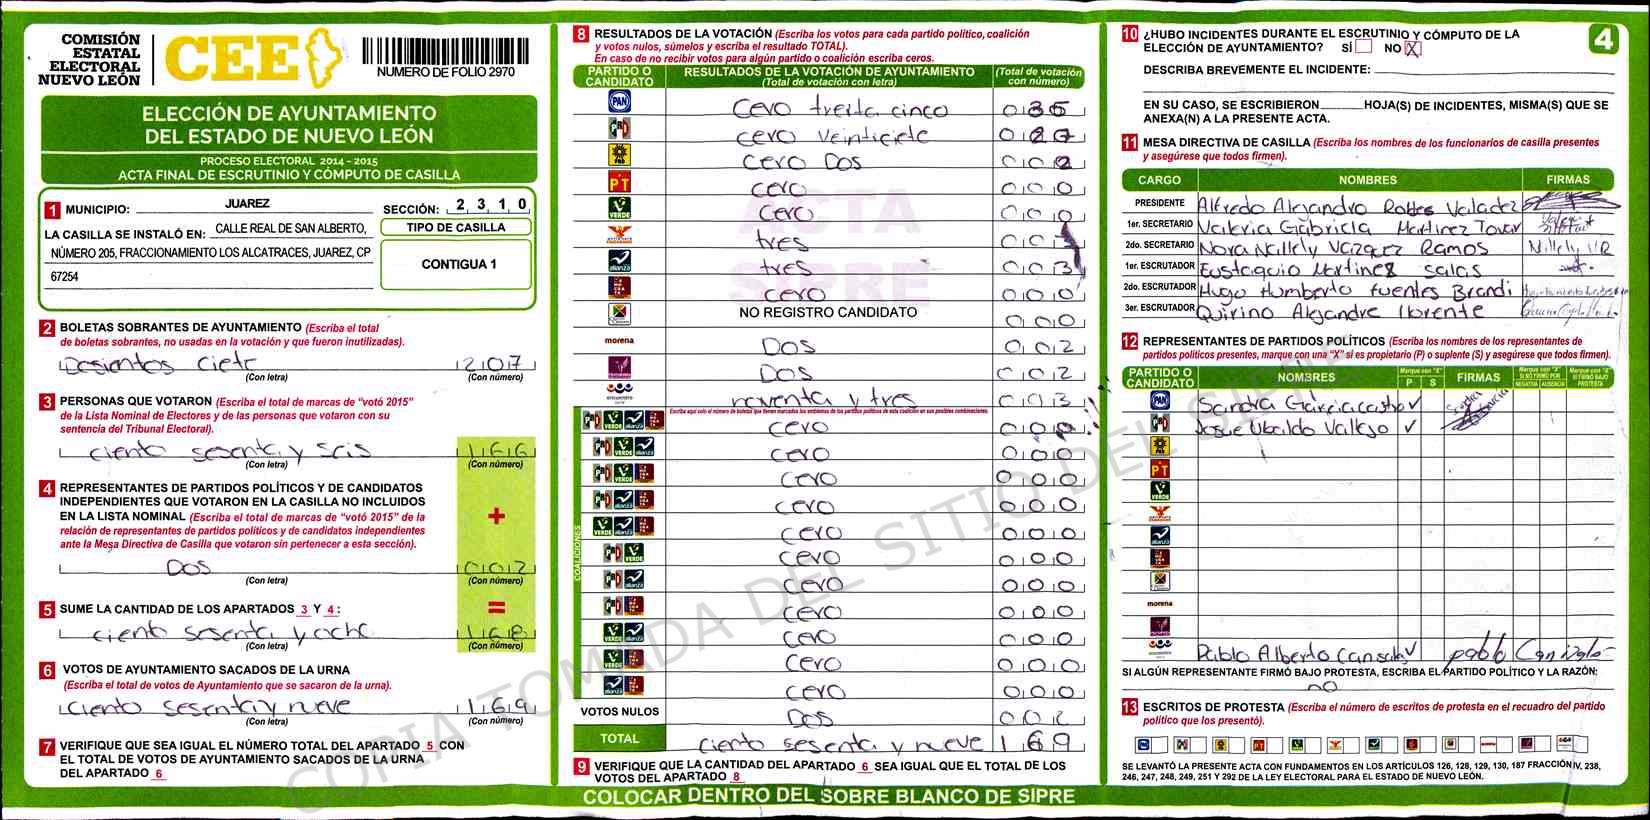 COMISIÓN
ESTATAL
ELECTORAL
NUEVO LEÓN
CEE
NUMERO DE FOLIO 2970
ELECCIÓN DE AYUNTAMIENTO
DEL ESTADO DE NUEVO LEÓN
PROCESO ELECTORAL 2014 - 2015
ACTA FINAL DE ESCRUTINIO Y CÓMPUTO DE CASILLA
1 MUNICIPIO: JUAREZ SECCIÓN: 2 3 1 0
LA CASILLA SE INSTALÓ EN: CALLE REAL DE SAN ALBERTO,
NÚMERO 205, FRACCIONAMIENTO LOS ALCATRACES, JUAREZ, CP
67254
TIPO DE CASILLA
CONTIGUA 1
2 BOLETAS SOBRANTES DE AYUNTAMIENTO (Escriba el total
de boletas sobrantes, no usadas en la votación y que fueron inutilizadas).
Dosientos ciete 207
(Con letra) (Con número)
3 PERSONAS QUE VOTARON (Escriba el total de marcas de “votó 2015”
de la Lista Nominal de Electores y de las personas que votaron con su
sentencia del Tribunal Electoral).
ciento sesenta y seis 166
(Con letra) (Con número)
4 REPRESENTANTES DE PARTIDOS POLÍTICOS Y DE CANDIDATOS
INDEPENDIENTES QUE VOTARON EN LA CASILLA NO INCLUIDOS
EN LA LISTA NOMINAL (Escriba el total de marcas de “votó 2015” de la
relación de representantes de partidos políticos y de candidatos independientes
ante la Mesa Directiva de Casilla que votaron sin pertenecer a esta sección).
+
DOS 002
(Con letra) (Con número)
5 SUME LA CANTIDAD DE LOS APARTADOS 3 Y 4 : =
ciento sesenta y ocho 168
(Con letra) (Con número)
6 VOTOS DE AYUNTAMIENTO SACADOS DE LA URNA
(Escriba el total de votos de Ayuntamiento que se sacaron de la urna).
ciento sesenta y nueve 169
(Con letra) (Con número)
7 VERIFIQUE QUE SEA IGUAL EL NÚMERO TOTAL DEL APARTADO 5 CON
EL TOTAL DE VOTOS DE AYUNTAMIENTO SACADOS DE LA URNA
DEL APARTADO 6
8 RESULTADOS DE LA VOTACIÓN (Escriba los votos para cada partido político, coalición
y votos nulos, súmelos y escriba el resultado TOTAL).
En caso de no recibir votos para algún partido o coalición escriba ceros.
PARTIDO O CANDIDATO RESULTADOS DE LA VOTACIÓN DE AYUNTAMIENTO (Total de votación con letra) (Total de votación con número)
PAN cero treita cinco 035
PRD cero veinticiete 027
PRD cero Dos 002
PT cero 000
VERDE cero 000
tres
alianza tres 003
cero 000
NO REGISTRO CANDIDATO 000
morena DOS 002
DOS 002
encuentro noventa y tres
Escriba aquí solo el número de boletas que tienen marcados los emblemas de los partidos políticos de esta coalición en sus posibles combinaciones.
COALICIONES
VERDE alianza cero 000
VERDE alianza cero 000
VERDE cero 000
alianza cero 000
VERDE alianza cero 000
VERDE cero 000
alianza cero 000
cero 000
VERDE alianza cero 000
VERDE cero 000
alianza cero 000
VOTOS NULOS DOS 002
TOTAL ciento sesenta y nueve 169
9 VERIFIQUE QUE LA CANTIDAD DEL APARTADO 6 SEA IGUAL QUE EL TOTAL DE LOS
VOTOS DEL APARTADO 8
COLOCAR DENTRO DEL SOBRE BLANCO DE SIPRE
ACTA
SIPRE
COPIA TOMADA DEL SITIO DEL SIPRE
10 ¿HUBO INCIDENTES DURANTE EL ESCRUTINIO Y CÓMPUTO DE LA
ELECCIÓN DE AYUNTAMIENTO? SÍ NO X
4
DESCRIBA BREVEMENTE EL INCIDENTE:
EN SU CASO, SE ESCRIBIERON HOJA(S) DE INCIDENTES, MISMA(S) QUE SE
ANEXA(N) A LA PRESENTE ACTA.
11 MESA DIRECTIVA DE CASILLA (Escriba los nombres de los funcionarios de casilla presentes
y asegúrese que todos firmen).
CARGO NOMBRES FIRMAS
PRESIDENTE Alfredo Alejandro Robles Valadez
1er. SECRETARIO Valeria Gabriela Martinez Tovar
2do. SECRETARIO Nora Nallely Vazquez Ramos Nallely VR
1er. ESCRUTADOR Eustaquio Martinez salas
2do. ESCRUTADOR Hugo Humberto fuentes Brandi
3er. ESCRUTADOR Quirino Alejandre llorente
12 REPRESENTANTES DE PARTIDOS POLÍTICOS (Escriba los nombres de los representantes de
partidos políticos presentes, marque con una “X” si es propietario (P) o suplente (S) y asegúrese que todos firmen).
PARTIDO O CANDIDATO NOMBRES Marque con "X" P S FIRMAS Marque con "X" SI NO FIRMÓ POR NEGATIVA AUSENCIA Marque con "X" SI FIRMÓ BAJO PROTESTA
PAN Sandra Garcia castro ✓ Sandra Garcia
Josue Ubaldo Vallejo ✓
PRD
PT
VERDE
alianza
morena
encuentro Pablo Alberto Cansales ✓ pablo
SI ALGÚN REPRESENTANTE FIRMÓ BAJO PROTESTA, ESCRIBA EL PARTIDO POLÍTICO Y LA RAZÓN:
no
13 ESCRITOS DE PROTESTA (Escriba el número de escritos de protesta en el recuadro del partido
político que los presentó).
SE LEVANTÓ LA PRESENTE ACTA CON FUNDAMENTOS EN LOS ARTÍCULOS 126, 128, 129, 130, 187 FRACCIÓN IV, 238,
246, 247, 248, 249, 251 Y 292 DE LA LEY ELECTORAL PARA EL ESTADO DE NUEVO LEÓN.